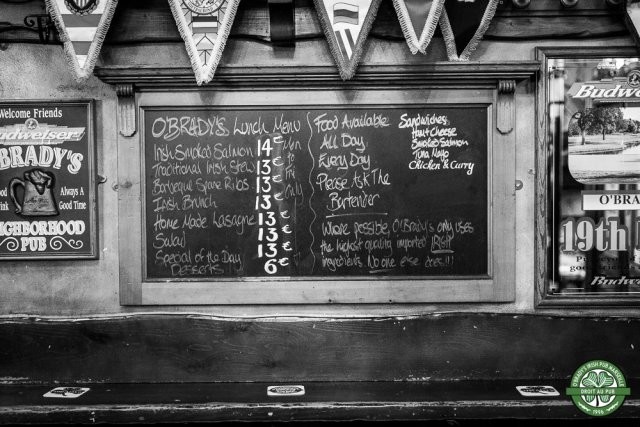 Welcome Friends
Budweiser
O'BRADY'S
Always A
Good Time
NEIGHBORHOOD
PUB
O'BRADY'S Lunch Menu
Irish Smoked Salmon 14€
Traditional Irish Stew 13€
Barbeque Spare Ribs 13€
Irish Brunch 13€
Home Made Lasagne 13€
Salad 13€
Special of the Day 13€
Desserts 6€
Food Available
All Day
Every Day
Please Ask The
Bartender
Where possible, O'Brady's only uses
the highest quality imported IRISH
ingredients. No one else does!!!
Sandwiches
Ham Cheese
Smoked Salmon
Tuna Mayo
Chicken & Curry
Budweiser
O'BRA
19th
Budweiser
O'BRADY'S IRISH PUB MARBELLA
DROIT AU PUB
1996